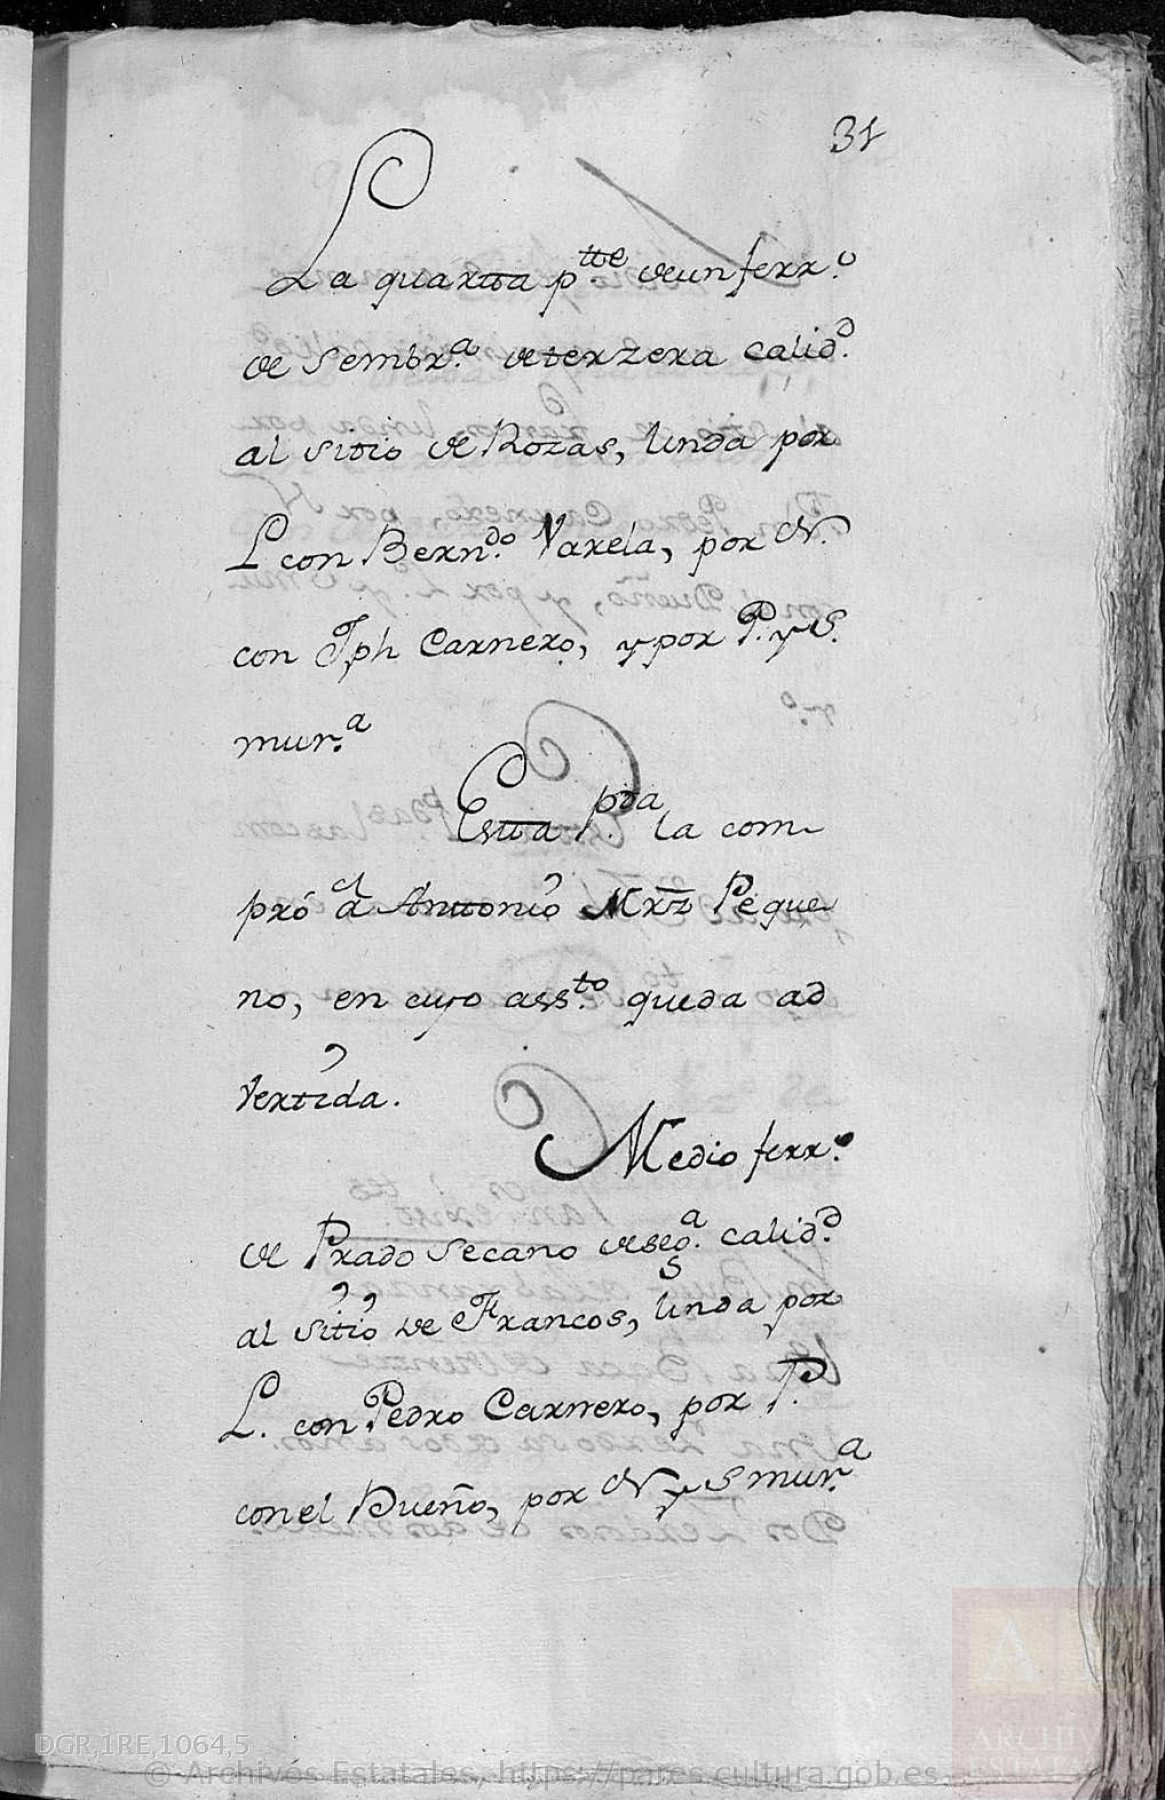 31
La quartta p.tte de un ferr.o
de Sembr.a de terzera calid.d
al sitio de Rozas, linda por
L con Bern.do Varela, por N.
con Jph Carnero, y por P. y S.
mur.a
Estta p.da la com
pró a Anttonio Mrz Peque
no, en cuyo ass.to queda ad
vertida.
Medio ferr.o
de Prado Secano de seg.a calid.d
al sitio de Francos, linda por
L. con Pedro Carnero, por P.
con el Dueño, por N y S mur.a
DGR,1RE,1064,5
© Archivos Estatales, https://pares.cultura.gob.es